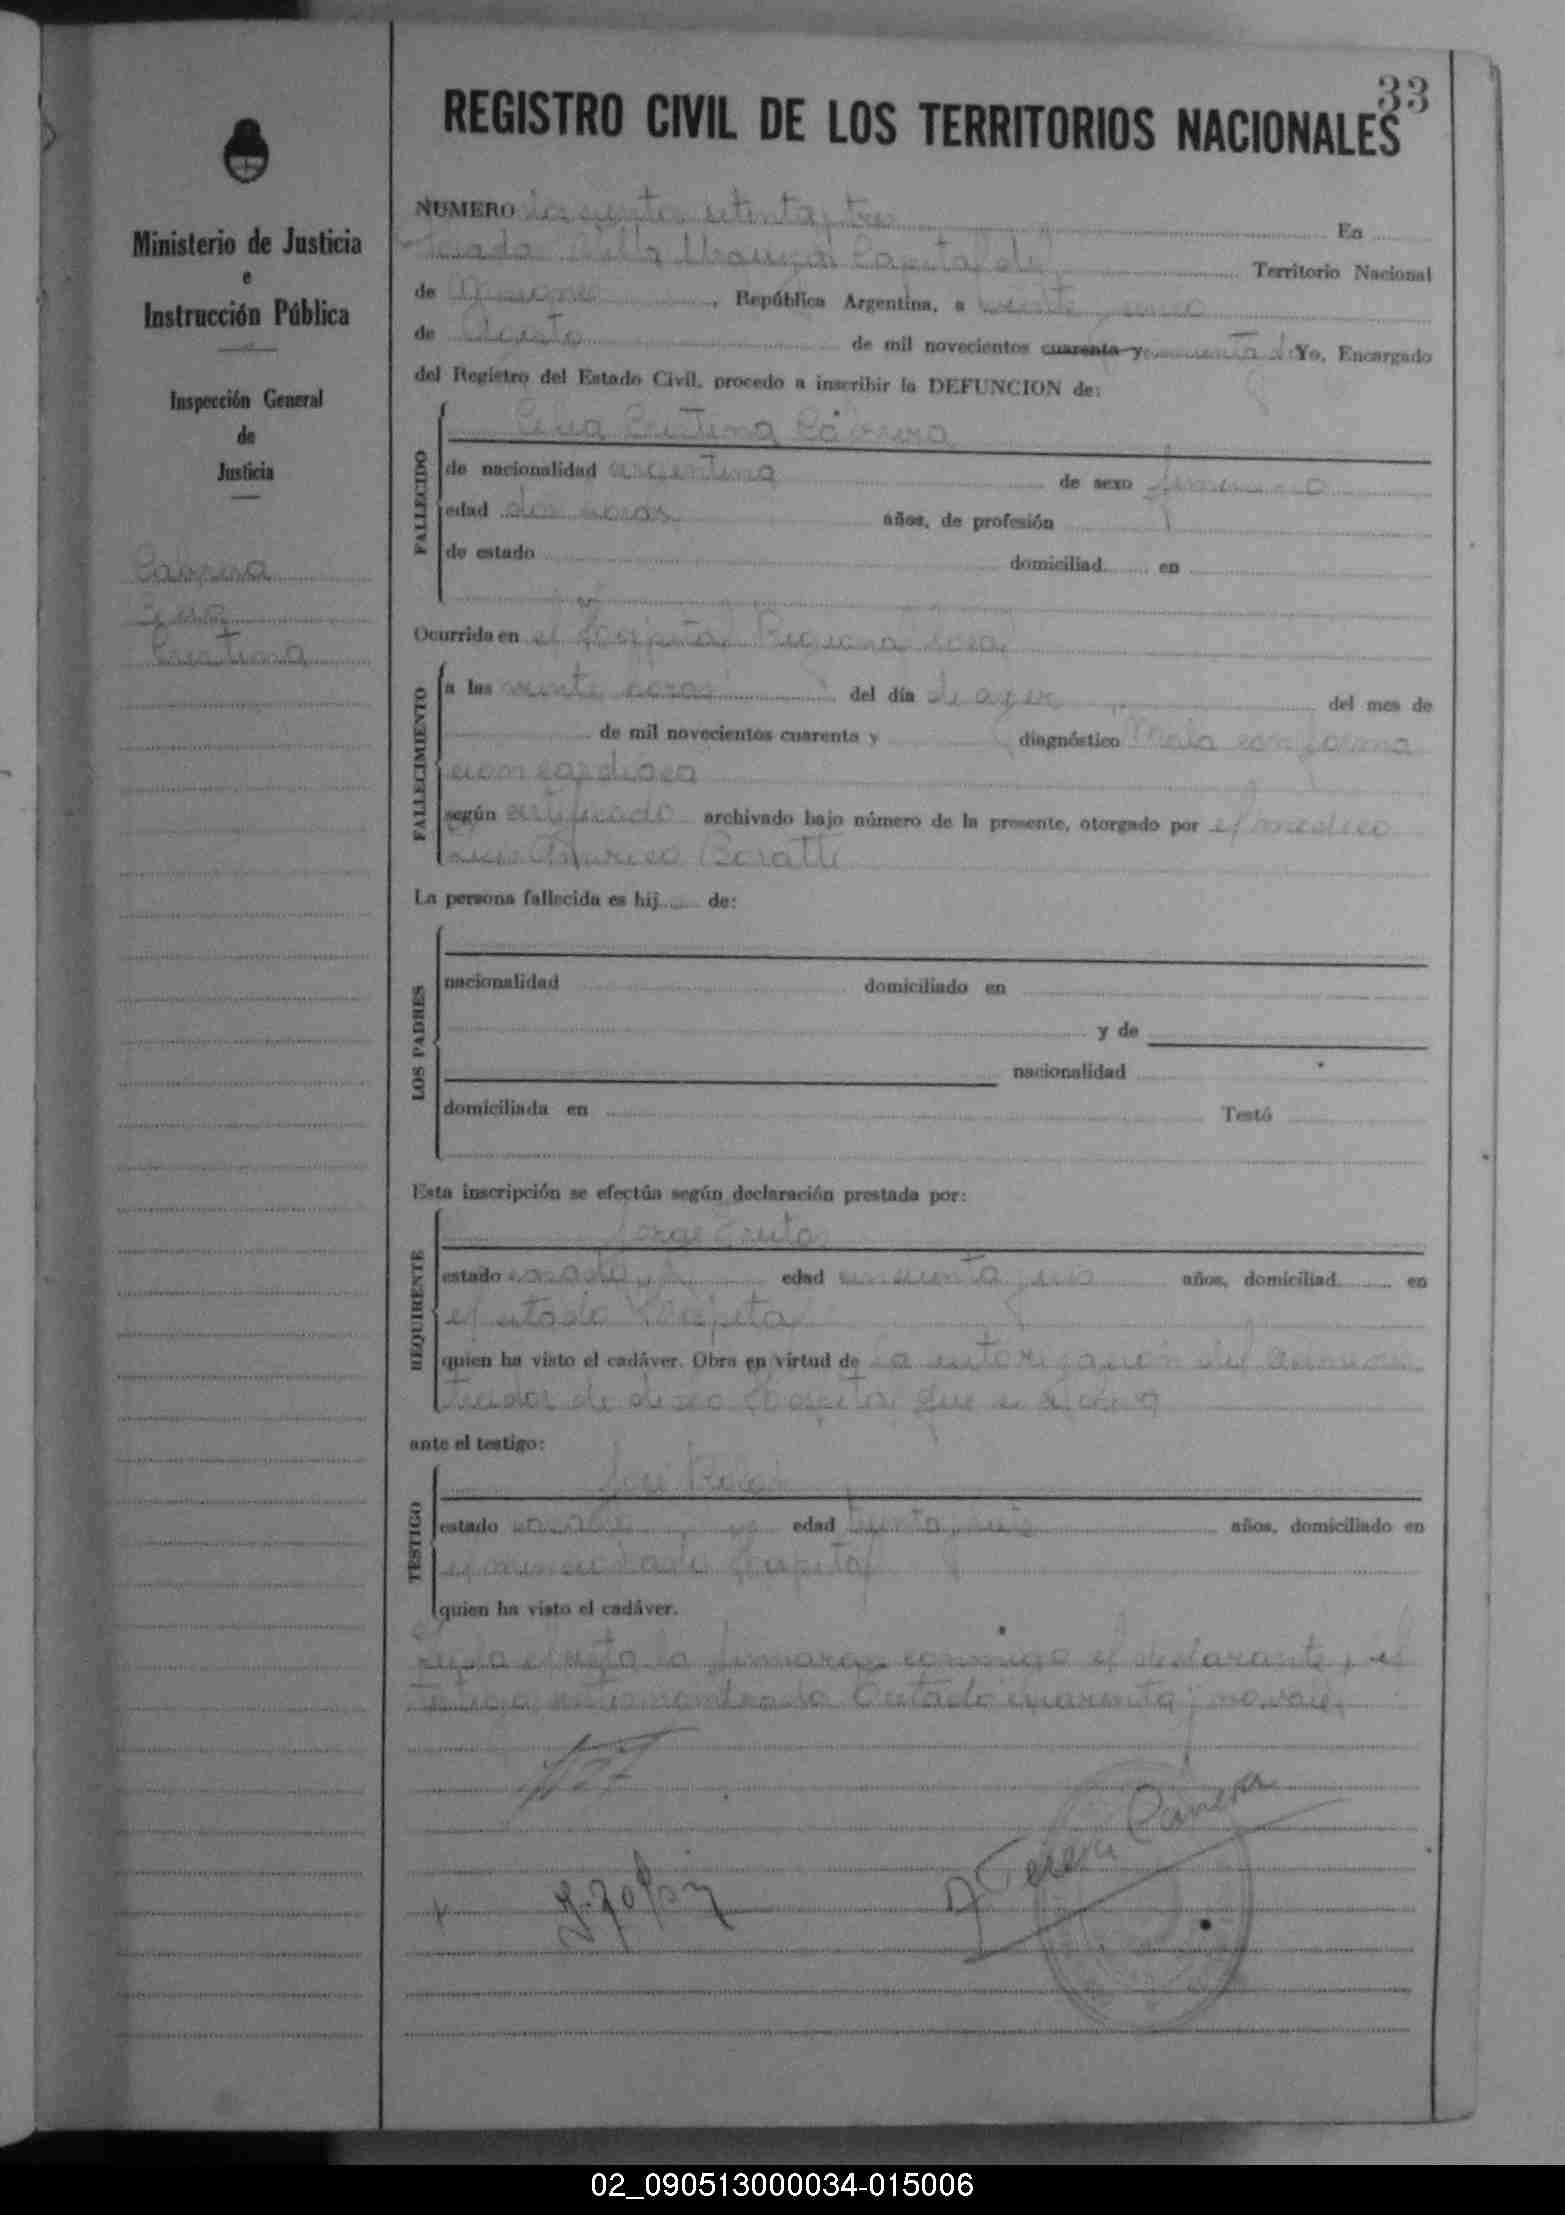 33
REGISTRO CIVIL DE LOS TERRITORIOS NACIONALES
Ministerio de Justicia
e
Instrucción Pública
Inspección General
de
Justicia
Cabrera
Cristina
NUMERO doscientos setenta y tres En
Posada Capital del Territorio Nacional
de Misiones, República Argentina, a veinte y cinco
de Agosto de mil novecientos cuarenta y cincuenta y Yo, Encargado
del Registro del Estado Civil, procedo a inscribir la DEFUNCION de:
FALLECIDO
Cristina Cabrera
de nacionalidad argentina de sexo femenino
edad dos horas años, de profesión
de estado domiciliad en
Ocurrida en el Hospital
FALLECIMIENTO
a las veinte horas del día de ayer del mes de
de mil novecientos cuarenta y diagnóstico Mala conforma
cion cardiaca
según certificado archivado bajo número de la presente, otorgado por el médico
La persona fallecida es hij de:
LOS PADRES
nacionalidad domiciliado en
y de
nacionalidad
domiciliada en Testó
Esta inscripción se efectúa según declaración prestada por:
REQUIRENTE
Jorge
estado casado edad cincuenta y años, domiciliad en
el citado Hospital
quien ha visto el cadáver. Obra en virtud de la autorización del adminis
trador de dicho Hospital que se archiva
ante el testigo:
TESTIGO
José
estado casado edad treinta y seis años, domiciliado en
el mencionado Hospital
quien ha visto el cadáver.
Leida el acta la firmaron conmigo el declarante y el
testigo Testado cuarenta y no vale
02_090513000034-015006